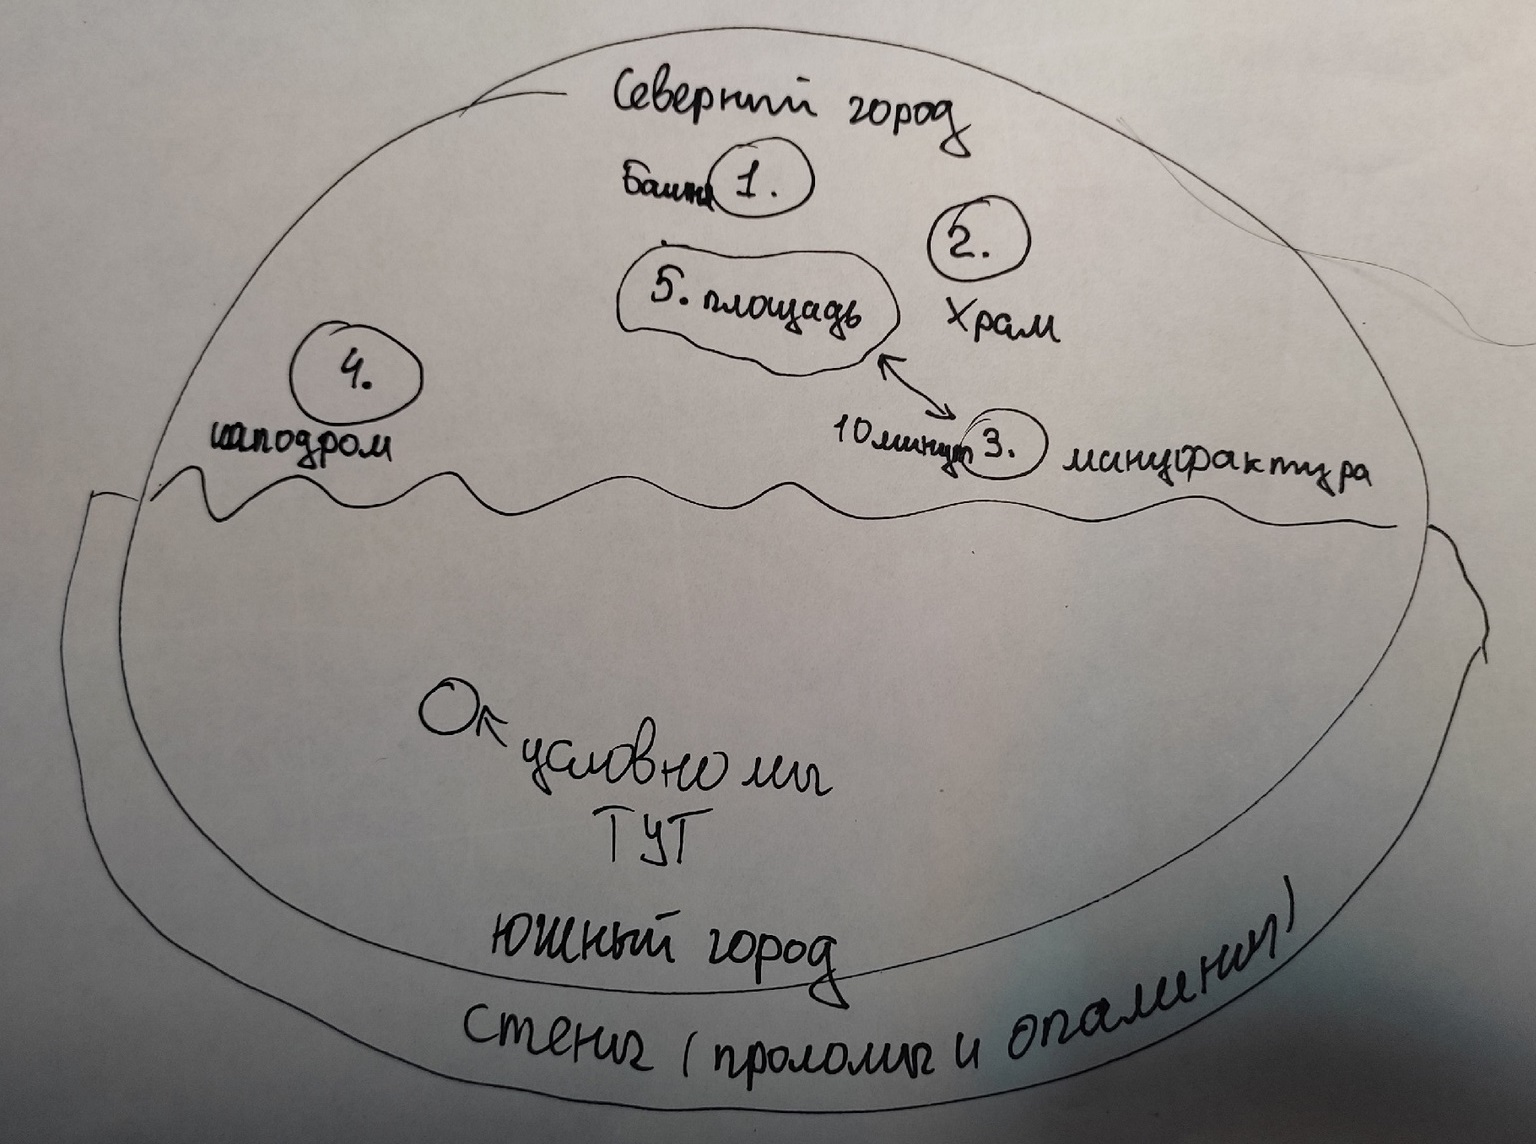 Северный город
Башня 1.
2.
Храм
5. площадь
4.
ипподром
10 минут 3. мануфактура
условно мы
ТУТ
южный город
стены (проломы и опалины)